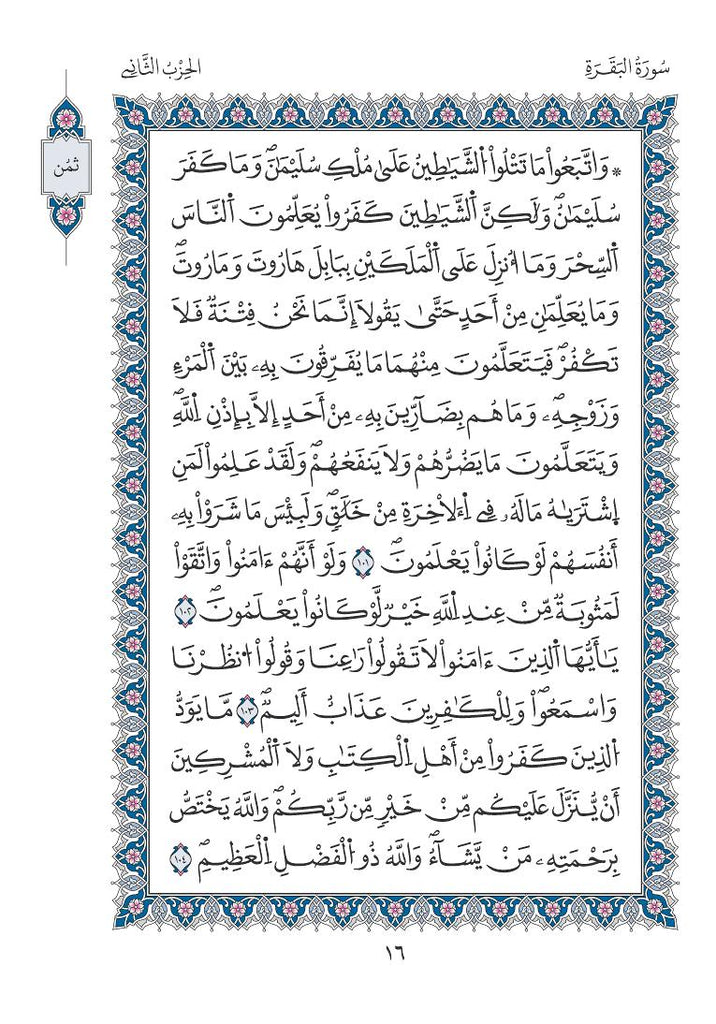 سُورَةُ البَقَرَةِ
الحِزْبُ الثَّانِي
ثُمُن
* وَاتَّبَعُواْ مَا تَتْلُواْ اُ۬لشَّيَٰطِينُ عَلَىٰ مُلْكِ سُلَيْمَٰنَۖ وَمَا كَفَرَ
سُلَيْمَٰنُۖ وَلَٰكِنَّ اَ۬لشَّيَٰطِينَ كَفَرُواْ يُعَلِّمُونَ اَ۬لنَّاسَ
اَ۬لسِّحْرَ وَمَا أُنزِلَ عَلَى اَ۬لْمَلَكَيْنِ بِبَابِلَ هَٰرُوتَ وَمَٰرُوتَۖ
وَمَا يُعَلِّمَٰنِ مِنْ أَحَدٍ حَتَّىٰ يَقُولَا إِنَّمَا نَحْنُ فِتْنَةٌ فَلَا
تَكْفُرْۖ فَيَتَعَلَّمُونَ مِنْهُمَا مَا يُفَرِّقُونَ بِهِۦ بَيْنَ اَ۬لْمَرْءِ
وَزَوْجِهِۦۖ وَمَا هُم بِضَآرِّينَ بِهِۦ مِنْ أَحَدٍ إِلَّا بِإِذْنِ اِ۬للَّهِۖ
وَيَتَعَلَّمُونَ مَا يَضُرُّهُمْ وَلَا يَنفَعُهُمْۖ وَلَقَدْ عَلِمُواْ لَمَنِ
اِ۪شْتَرَيٰهُ مَا لَهُۥ فِي اِ۬لْأٓخِرَةِ مِنْ خَلَٰقٖۖ وَلَبِئْسَ مَا شَرَوْاْ بِهِۦ
أَنفُسَهُمْ لَوْ كَانُواْ يَعْلَمُونَۖ ١٠١ وَلَوْ أَنَّهُمْ ءَامَنُواْ وَاتَّقَوْاْ
لَمَثُوبَةٌ مِّنْ عِندِ اِ۬للَّهِ خَيْرٌ لَّوْ كَانُواْ يَعْلَمُونَۖ ١٠٢
يَٰأَيُّهَا اَ۬لذِينَ ءَامَنُواْ لَا تَقُولُواْ رَٰعِنَا وَقُولُواْ اُ۟نظُرْنَا
وَاسْمَعُواْۖ وَلِلْكَٰفِرِينَ عَذَابٌ أَلِيمٌۖ ١٠٣ مَّا يَوَدُّ
اُ۬لذِينَ كَفَرُواْ مِنْ أَهْلِ اِ۬لْكِتَٰبِ وَلَا اَ۬لْمُشْرِكِينَ
أَنْ يُّنَزَّلَ عَلَيْكُم مِّنْ خَيْرٖ مِّن رَّبِّكُمْۖ وَاللَّهُ يَخْتَصُّ
بِرَحْمَتِهِۦ مَنْ يَّشَآءُۖ وَاللَّهُ ذُو اُ۬لْفَضْلِ اِ۬لْعَظِيمِۖ ١٠٤
١٦